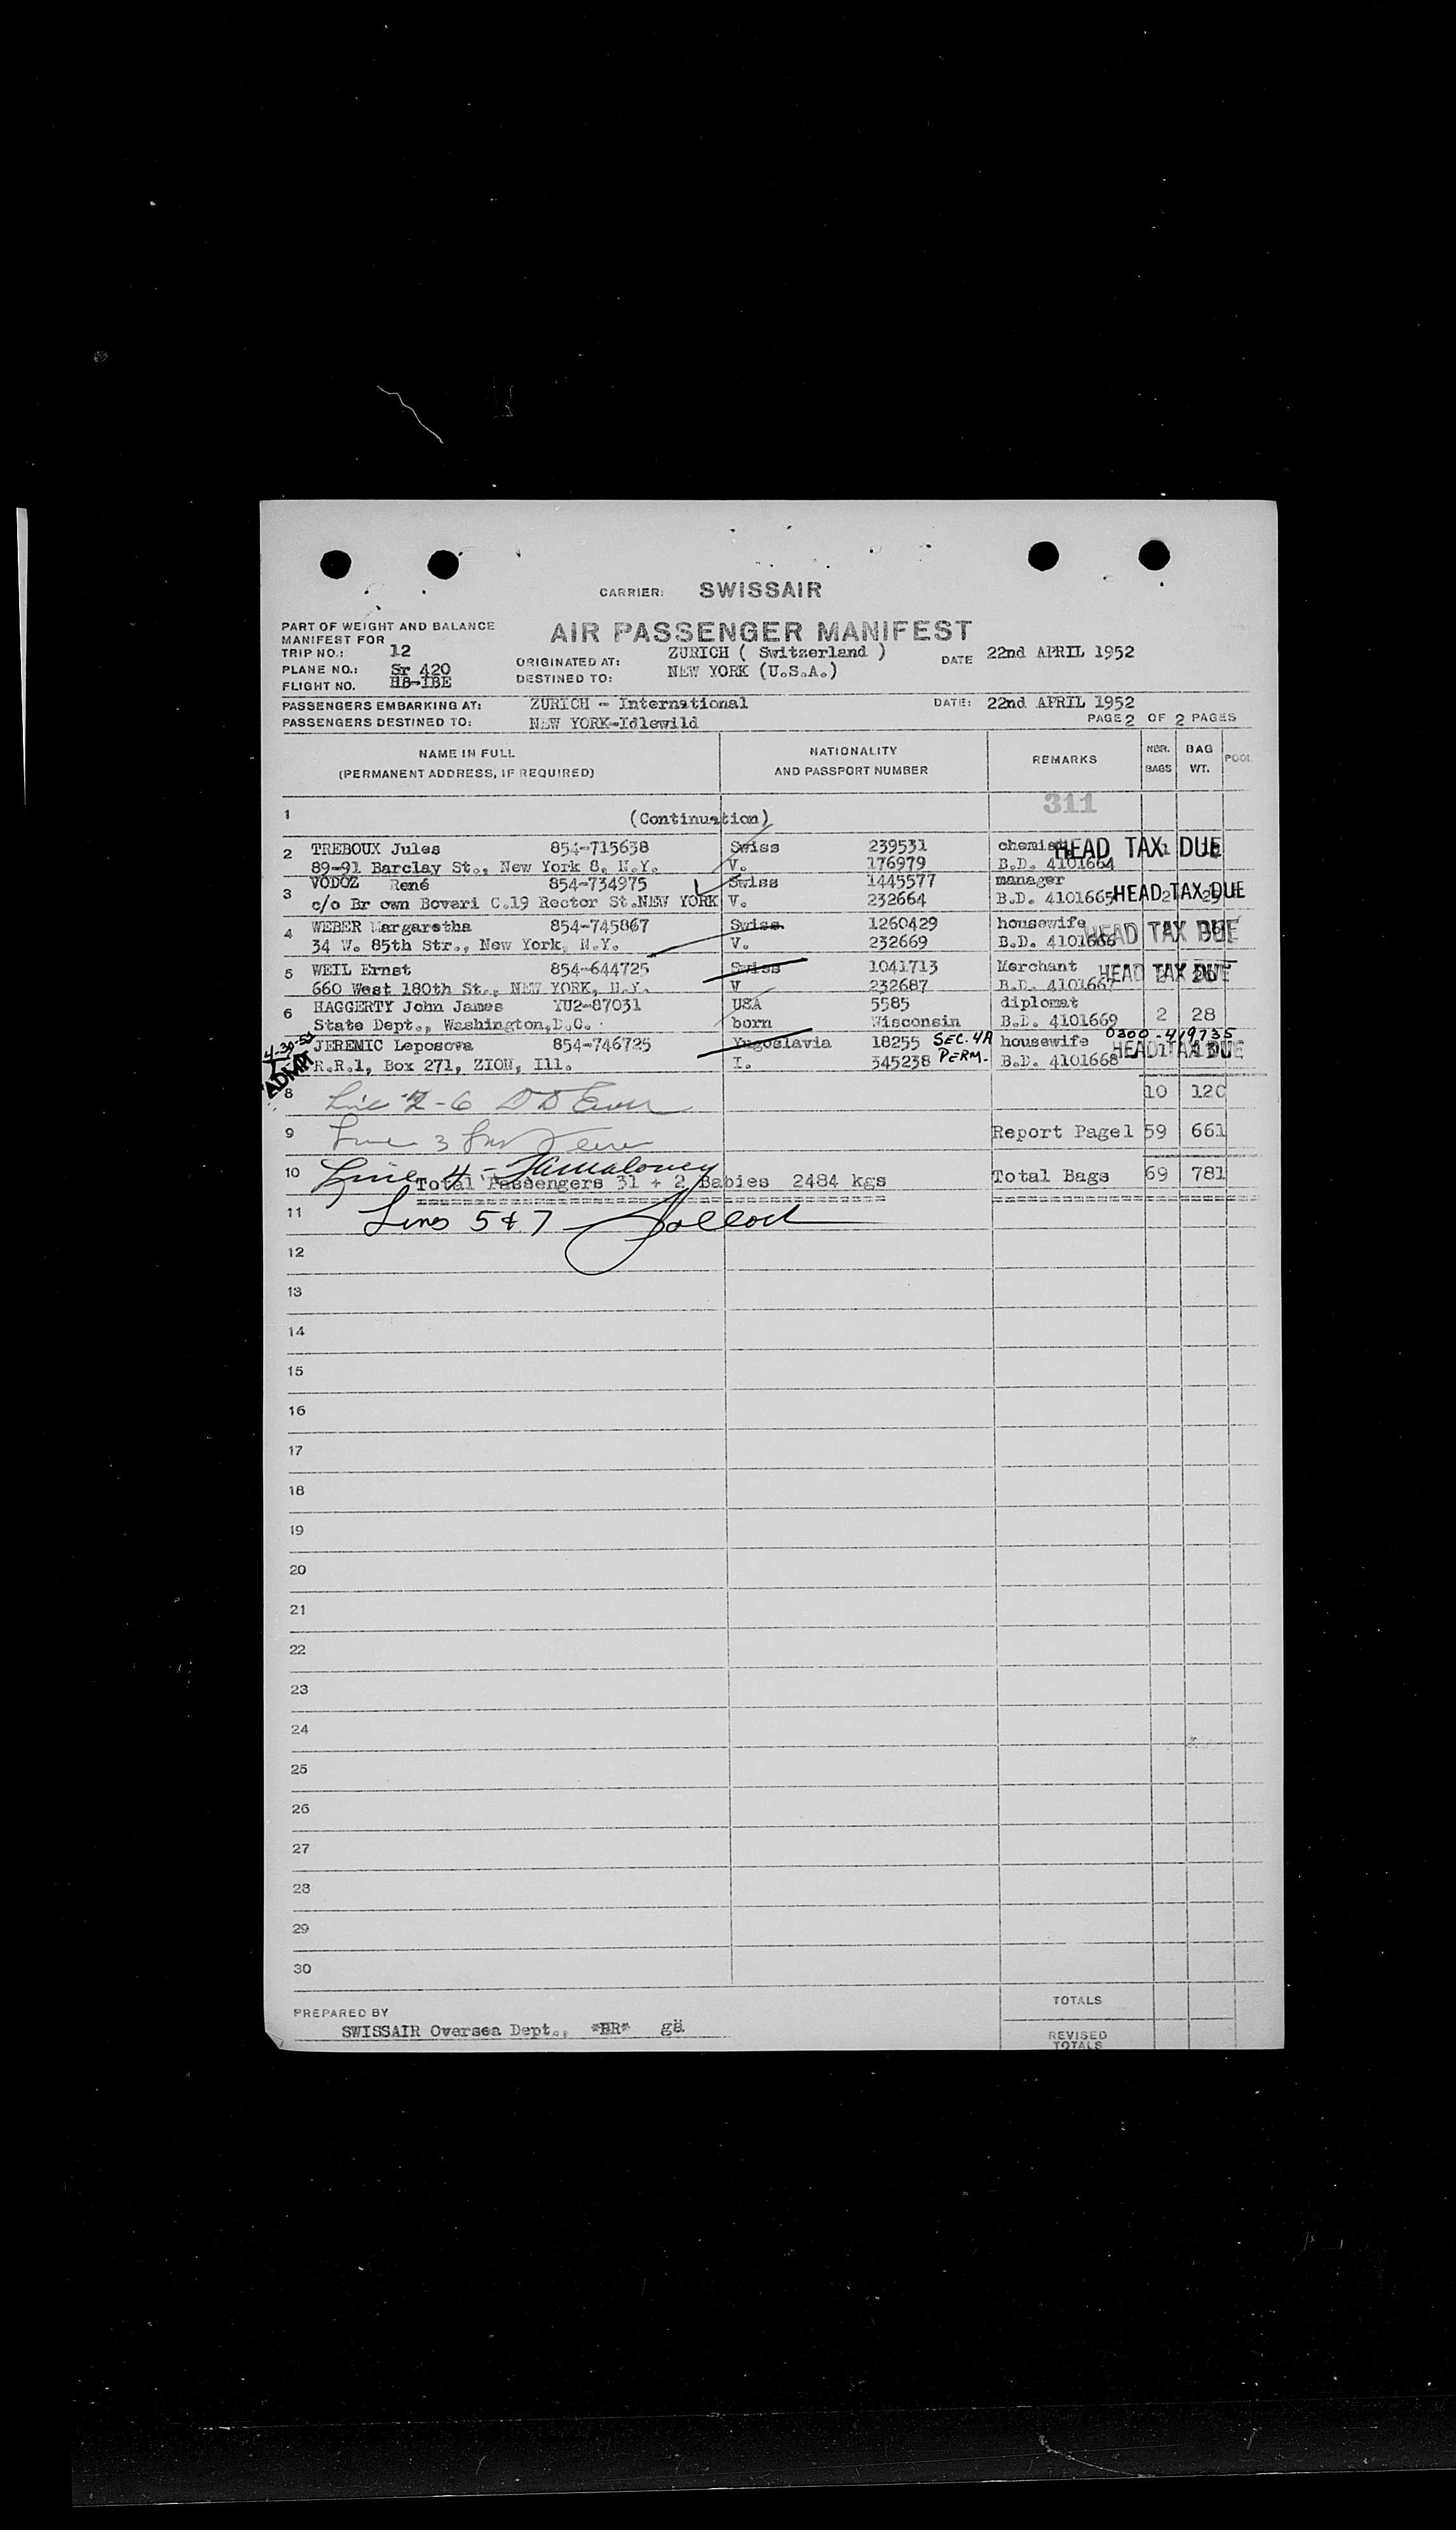 CARRIER: SWISSAIR
PART OF WEIGHT AND BALANCE
MANIFEST FOR
AIR PASSENGER MANIFEST
TRIP NO.: 12
PLANE NO.: Sr 420
FLIGHT NO. HB-IBE
ORIGINATED AT: ZURICH ( Switzerland )
DESTINED TO: NEW YORK (U.S.A.)
DATE 22nd APRIL 1952
PASSENGERS EMBARKING AT: ZURICH - International DATE: 22nd APRIL 1952
PASSENGERS DESTINED TO: NEW YORK-Idlewild PAGE 2 OF 2 PAGES
NAME IN FULL
(PERMANENT ADDRESS, IF REQUIRED)
NATIONALITY
AND PASSPORT NUMBER
REMARKS
NBR.
BAGS
BAG
WT.
POOL
311
1 (Continuation)
2 TREBOUX Jules 854-715638 Swiss 239531 chemist HEAD TAX DUE
89-91 Barclay St., New York 8, N.Y. V. 176979 B.D. 4101664
3 VODOZ René 854-734975 Swiss 1445577 manager HEAD TAX DUE
c/o Br own Boveri C.19 Rector St.NEW YORK V. 232664 B.D. 4101665
4 WEBER Margaretha 854-745867 Swiss 1260429 housewife HEAD TAX DUE
34 W. 85th Str., New York, N.Y. V. 232669 B.D. 4101666
5 WEIL Ernst 854-644725 Swiss 1041713 Merchant HEAD TAX DUE
660 West 180th St., NEW YORK, N.Y. V 232687 B.D. 4101667
6 HAGGERTY John James YU2-87031 USA 5585 diplomat 2 28
State Dept., Washington,D.C. born Wisconsin B.D. 4101669
4-30-52
ADMIT
JEREMIC Leposova 854-746725 Yugoslavia 18255 SEC. 4A housewife 0300-419735
R.R.1, Box 271, ZION, Ill. I. 345238 PERM- B.D. 4101668 HEAD TAX DUE
8 Line 2-6 10 120
9 Line 3 Report Page1 59 661
10 Line 4 - Total Passengers 31 + 2 Babies 2484 kgs Total Bags 69 781
11 Lines 5 & 7
12
13
14
15
16
17
18
19
20
21
22
23
24
25
26
27
28
29
30
TOTALS
PREPARED BY
SWISSAIR Oversea Dept., *BR* gä
REVISED
TOTALS